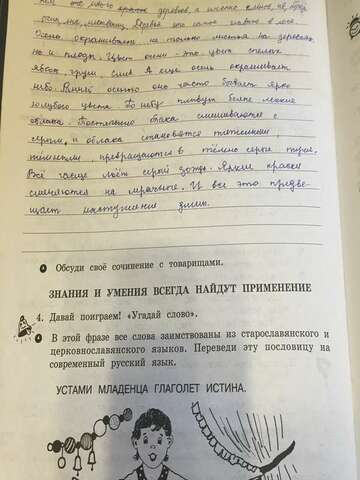 это много красоты деревьев, а именно клёнов,
Деревья это самое главное в лесе.
Осень окрашивает не только листья на деревьях,
но и плоды. Цвет осени - это цвет спелых
яблок, груш, слив. А ещё осень окрашивает
небо. Ранней осенью оно часто бывает ярко
голубого цвета. По небу плывут белые лёгкие
облака. Постепенно облака смешиваются с
серым, и облака становятся тяжёлыми,
тёмными, превращаются в тёмно серые тучи.
Всё чаще льёт серый дождь. Яркие краски
сменяются на мрачные. И все это предве-
щает наступление зимы.
Обсуди своё сочинение с товарищами.
ЗНАНИЯ И УМЕНИЯ ВСЕГДА НАЙДУТ ПРИМЕНЕНИЕ
4. Давай поиграем! «Угадай слово».
В этой фразе все слова заимствованы из старославянского и
церковнославянского языков. Переведи эту пословицу на
современный русский язык.
УСТАМИ МЛАДЕНЦА ГЛАГОЛЕТ ИСТИНА.